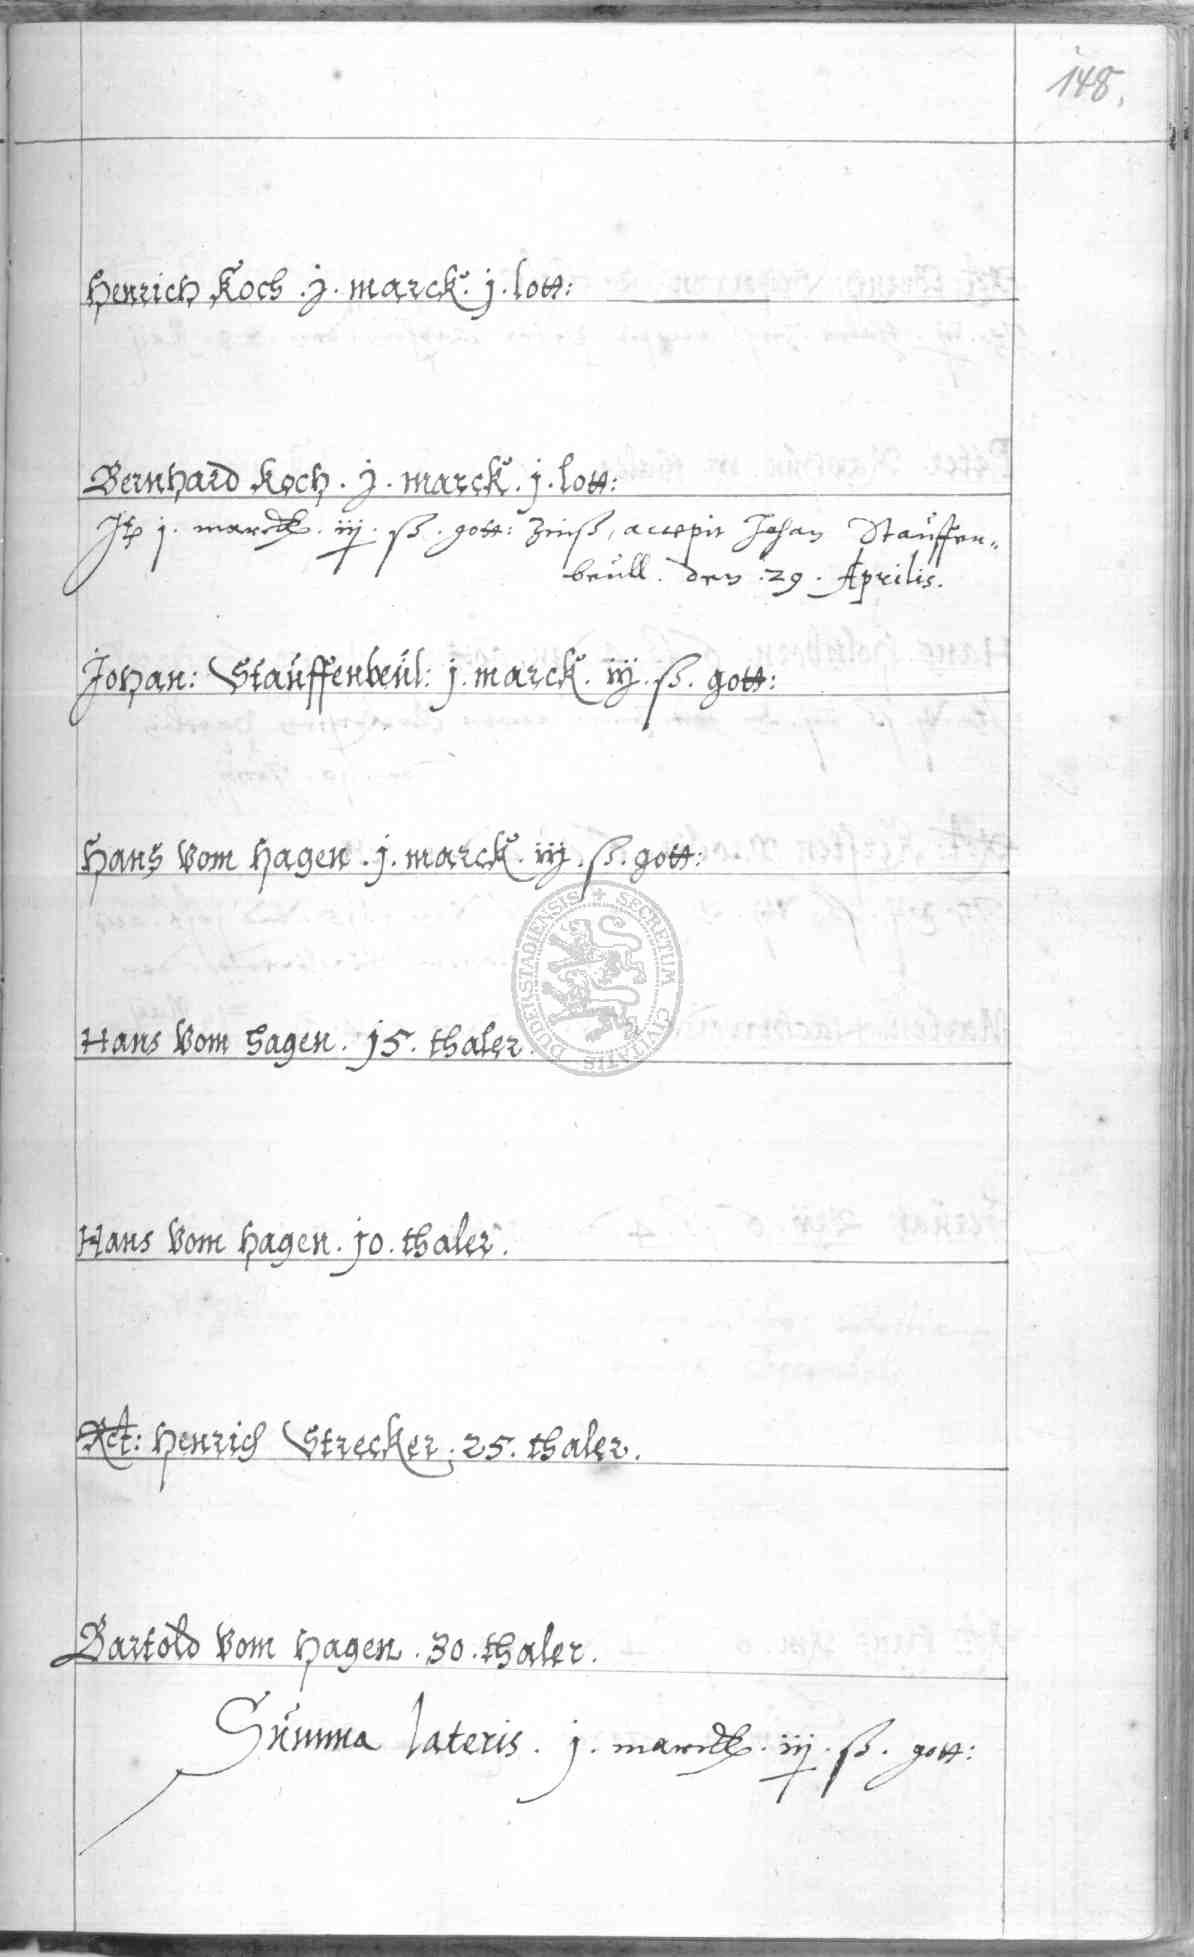 148.
Henrich Koch . j . marck . j . lott:
Bernhard Koch . j . marck . j . lott:
j . marck . iij . ß . gott: Zinß, accepit Johan Stauffen„
beull . den . 29 . Aprilis.
Johan: Stauffenbeul: j . marck . iij . ß . gott:
Hans Vom Hagen . j . marck . iij . ß . gott:
SECRETUM CIVITATIS DUDERSTADIENSIS
Hans Vom Hagen . 15 . thaler.
Hans Vom Hagen . 10 . thaler.
Rct: Henrich Strecker . 25 . thaler.
Bartold Vom Hagen . 30 . thaler.
Summa lateris . j . marck . iij . ß . gott: